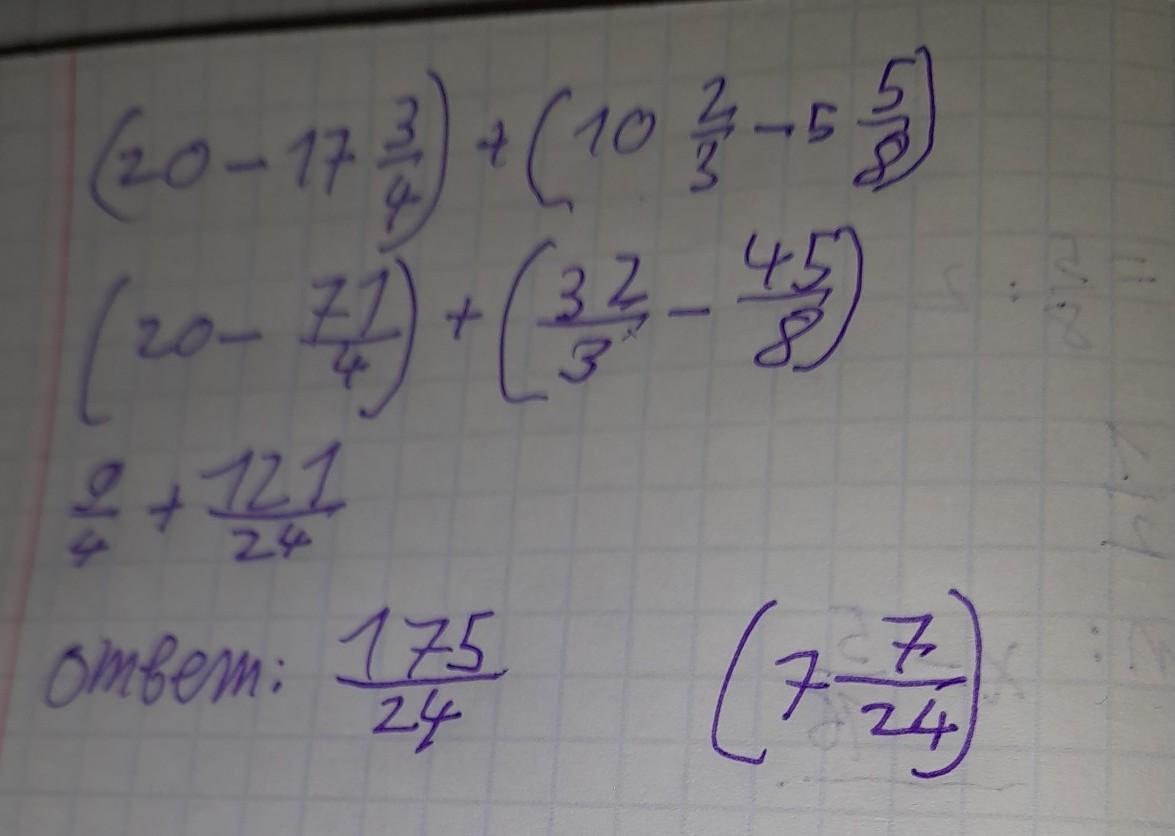 (20 - 17 3/4) + (10 2/3 - 5 5/8)
(20 - 71/4) + (32/3 - 45/8)
9/4 + 121/24
ответ: 175/24 (7 7/24)